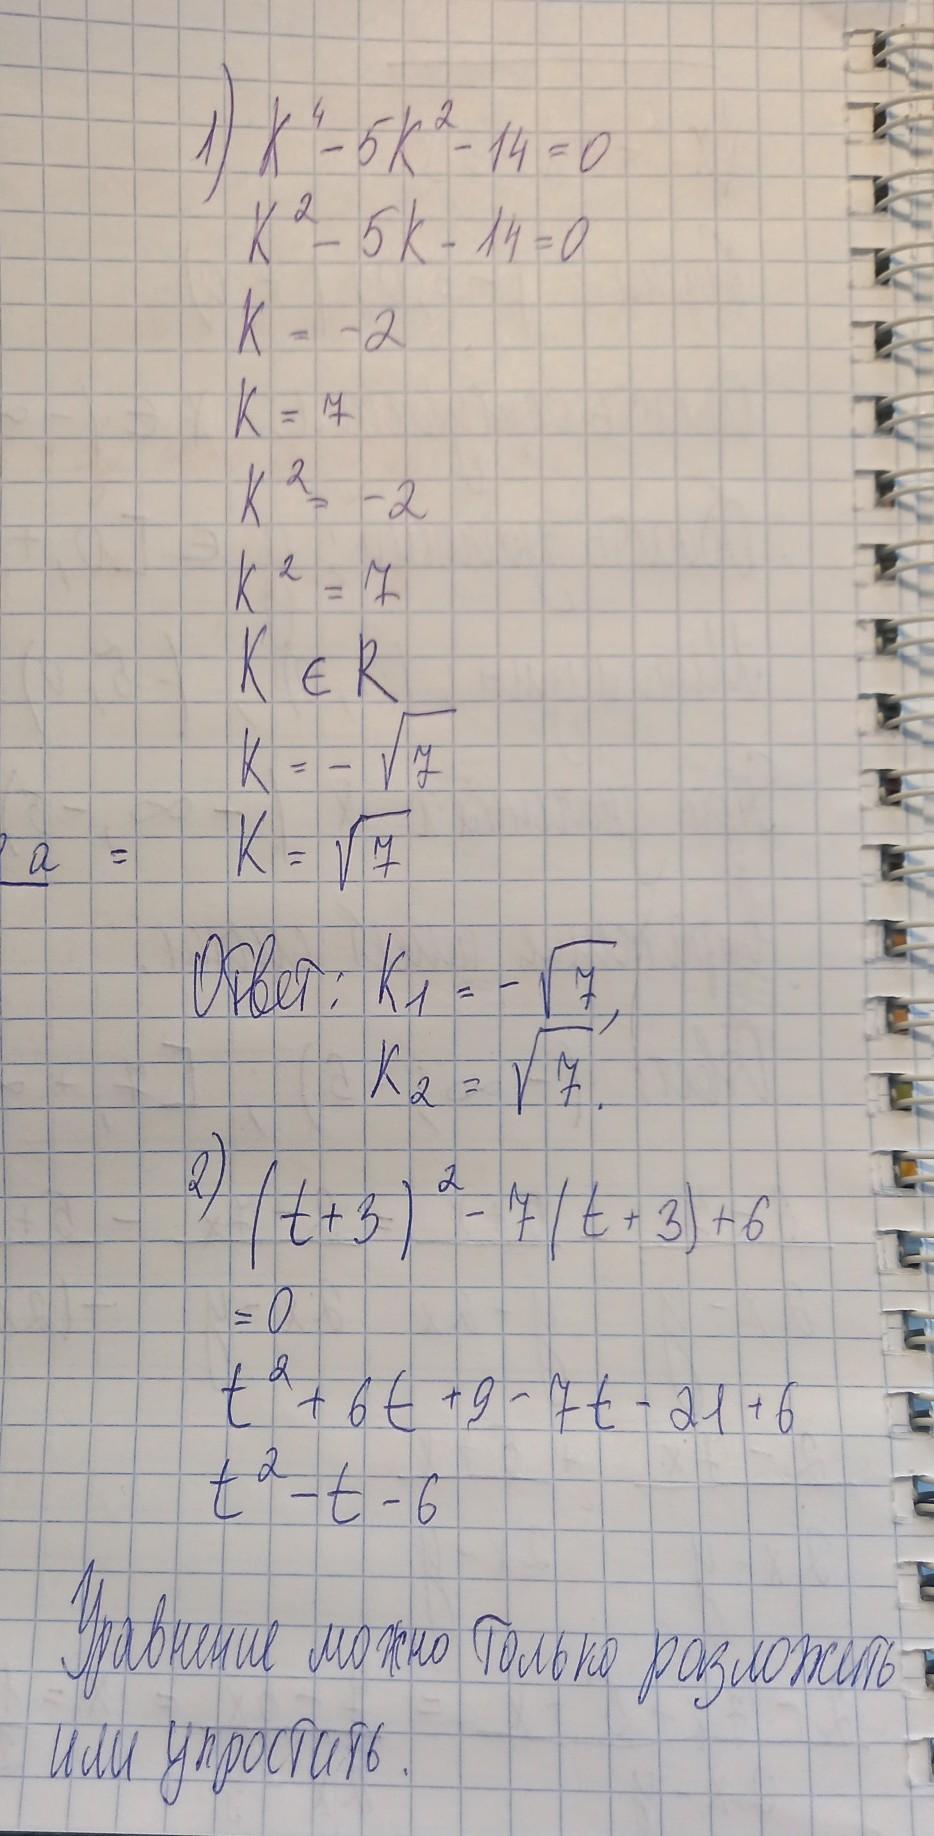 1) K⁴ - 5K² - 14 = 0
K² - 5K - 14 = 0
K = -2
K = 7
K² = -2
K² = 7
K ∈ R
K = -√7
a = K = √7
Ответ: K₁ = -√7,
K₂ = √7.
2) (t+3)² - 7(t+3)+6
= 0
t² + 6t + 9 - 7t - 21 + 6
t² - t - 6
Уравнение можно только разложить
или упростить.